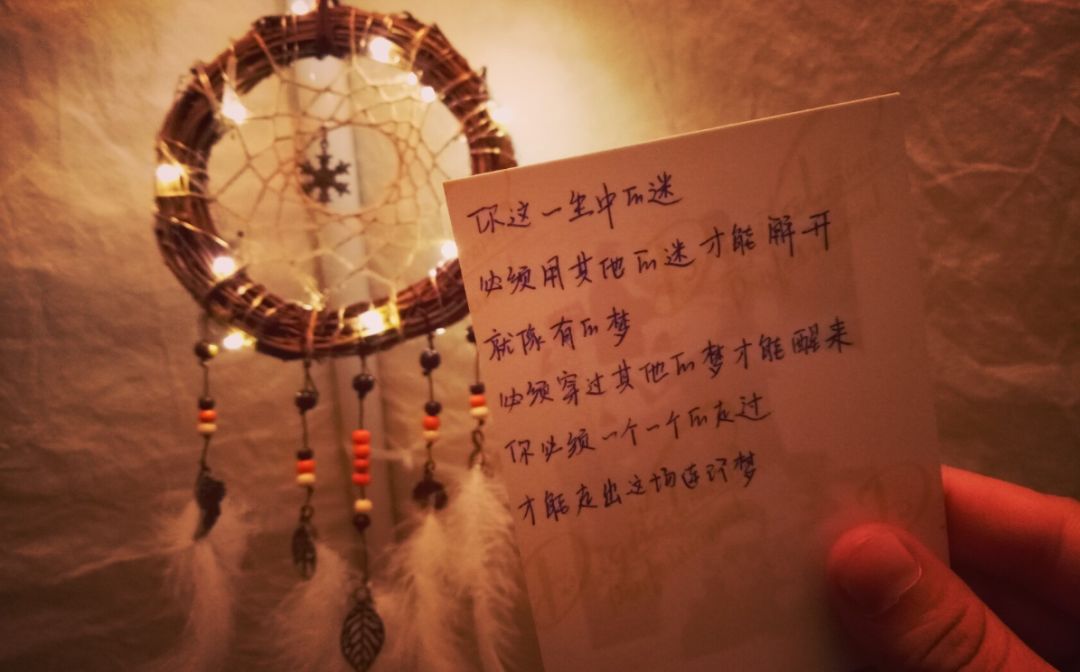 你这一生中的迷
必须用其他的迷才能解开
就像有的梦
必须穿过其他的梦才能醒来
你必须一个一个的走过
才能走出这场连环梦